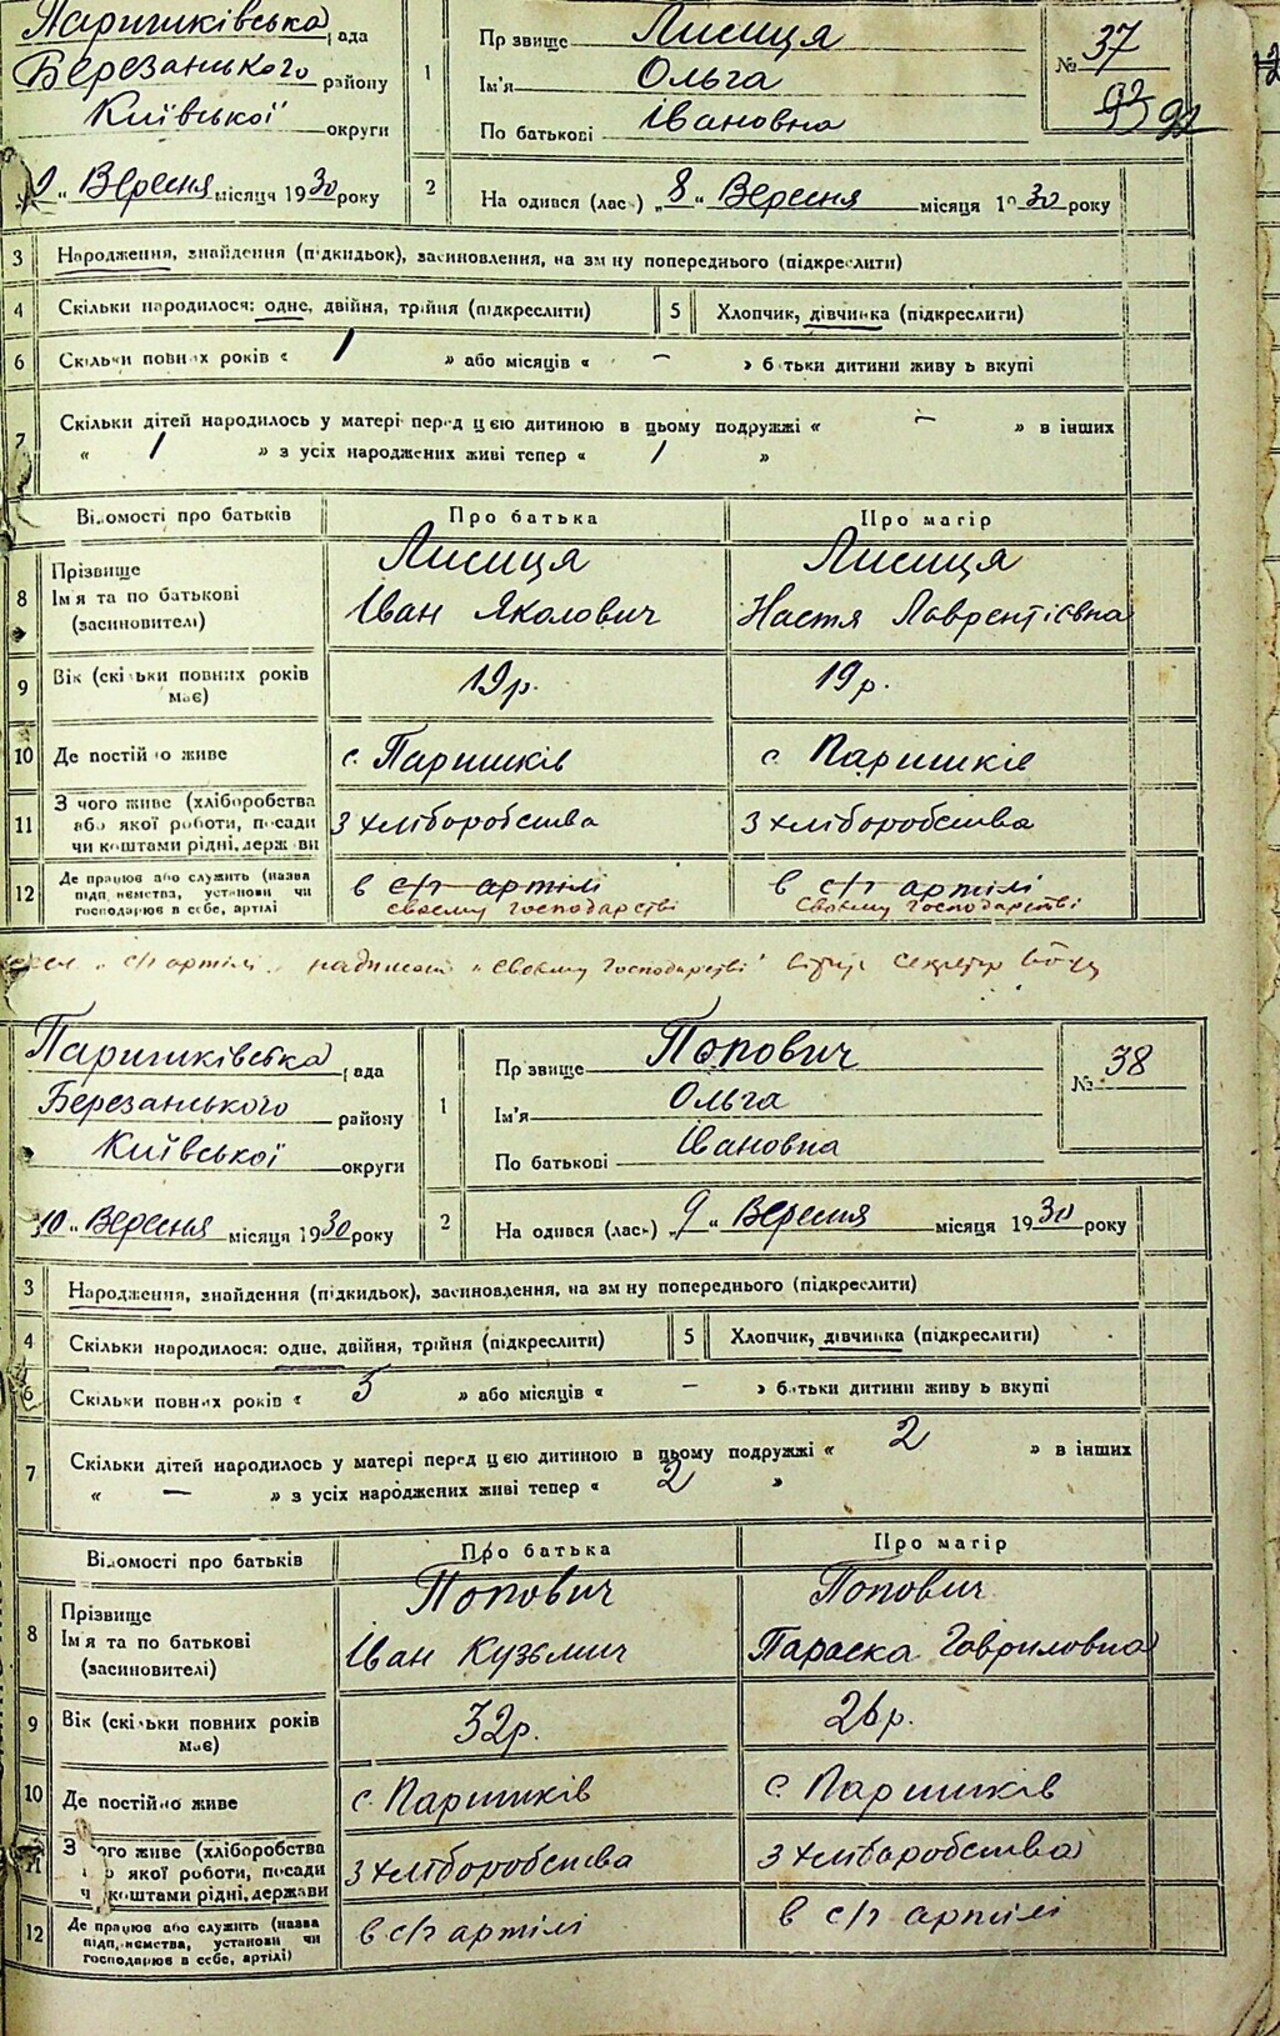 Паришківська рада
Березанького району
Київської округи
" Вересня місяця 1930 року
1
Прізвище Лисиця
Ім'я Ольга
По батькові Івановна
№ 37
93 92
2
На одився (лась) „8" Вересня місяця 1930 року
3 Народження, знайдення (підкидьок), засиновлення, на зм ну попереднього (підкреслити)
4 Скільки народилося: одне, двійня, трійня (підкреслити)
5 Хлопчик, дівчинка (підкреслити)
6 Скільки повних років « 1 » або місяців « – » батьки дитини живу ь вкупі
7 Скільки дітей народилось у матері перед цією дитиною в цьому подружжі « – » в інших
« 1 » з усіх народжених живі тепер « 1 »
Відомості про батьків Про батька Про матір
8 Прізвище Лисиця Лисиця
Ім'я та по батькові Іван Яколович Настя Лаврентієвна
(засиновителі)
9 Вік (скільки повних років має) 19 р. 19 р.
10 Де постійно живе с. Паришків с. Паришків
11 З чого живе (хліборобства
або якої роботи, посади З хліборобства З хліборобства
чи коштами рідні, держави
12 Де працює або служить (назва
підприємства, установи чи в с/г артілі в с/г артілі
господарює в себе, артілі своєму господарстві своєму господарстві
„с/г артілі" надписані „своєму господарстві" Секретар
Паришківська рада
Березанького району
Київської округи
10 " Вересня місяця 1930 року
1
Прізвище Попович
Ім'я Ольга
По батькові Івановна
№ 38
2
На одився (лась) „9" Вересня місяця 1930 року
3 Народження, знайдення (підкидьок), засиновлення, на зм ну попереднього (підкреслити)
4 Скільки народилося: одне, двійня, трійня (підкреслити)
5 Хлопчик, дівчинка (підкреслити)
6 Скільки повних років « 5 » або місяців « – » батьки дитини живу ь вкупі
7 Скільки дітей народилось у матері перед цією дитиною в цьому подружжі « 2 » в інших
« – » з усіх народжених живі тепер « 2 »
Відомості про батьків Про батька Про матір
8 Прізвище Попович Попович
Ім'я та по батькові Іван Кузьмич Параска Гавриловна
(засиновителі)
9 Вік (скільки повних років має) 32 р. 26 р.
10 Де постійно живе с. Паришків с. Паришків
11 З чого живе (хліборобства
або якої роботи, посади З хліборобства З хліборобства
чи коштами рідні, держави
12 Де працює або служить (назва
підприємства, установи чи в с/г артілі в с/г артілі
господарює в себе, артілі)